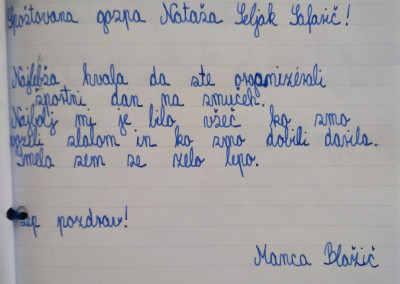 Spoštovana gospa Nataša Seljak Safarič!
Najlepša hvala da ste organizirali
športni dan na smučeh.
Najbolj mi je bilo všeč ko smo
vozili slalom in ko smo dobili darila.
Imela sem se zelo lepo.
Lep pozdrav!
Manca Blažič